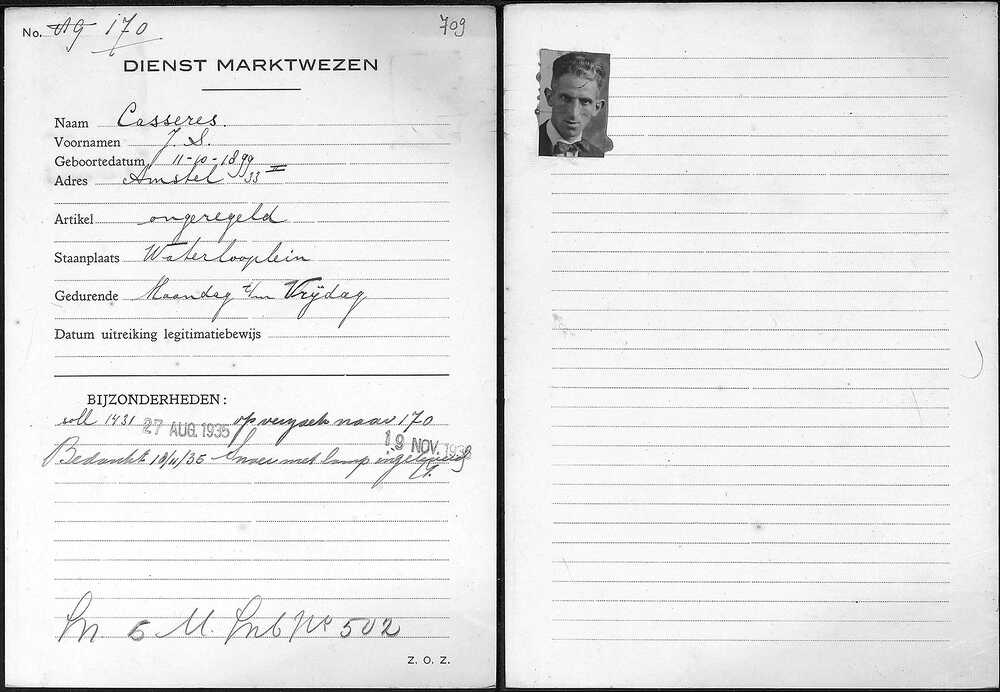 No. 119 170
709
DIENST MARKTWEZEN
Naam Casseres.
Voornamen J. S.
Geboortedatum 11-10-1899
Adres Amstel 33 II
Artikel ongeregeld
Staanplaats Waterlooplein
Gedurende Maandag t/m Vrijdag
Datum uitreiking legitimatiebewijs
BIJZONDERHEDEN:
soll 1431 27 AUG. 1935 op verzoek naar 170
19 NOV. 193
Bedankt 18/11/35 Snoer met lamp ingeleverd
Sn. 6 M. No 502
Z. O. Z.